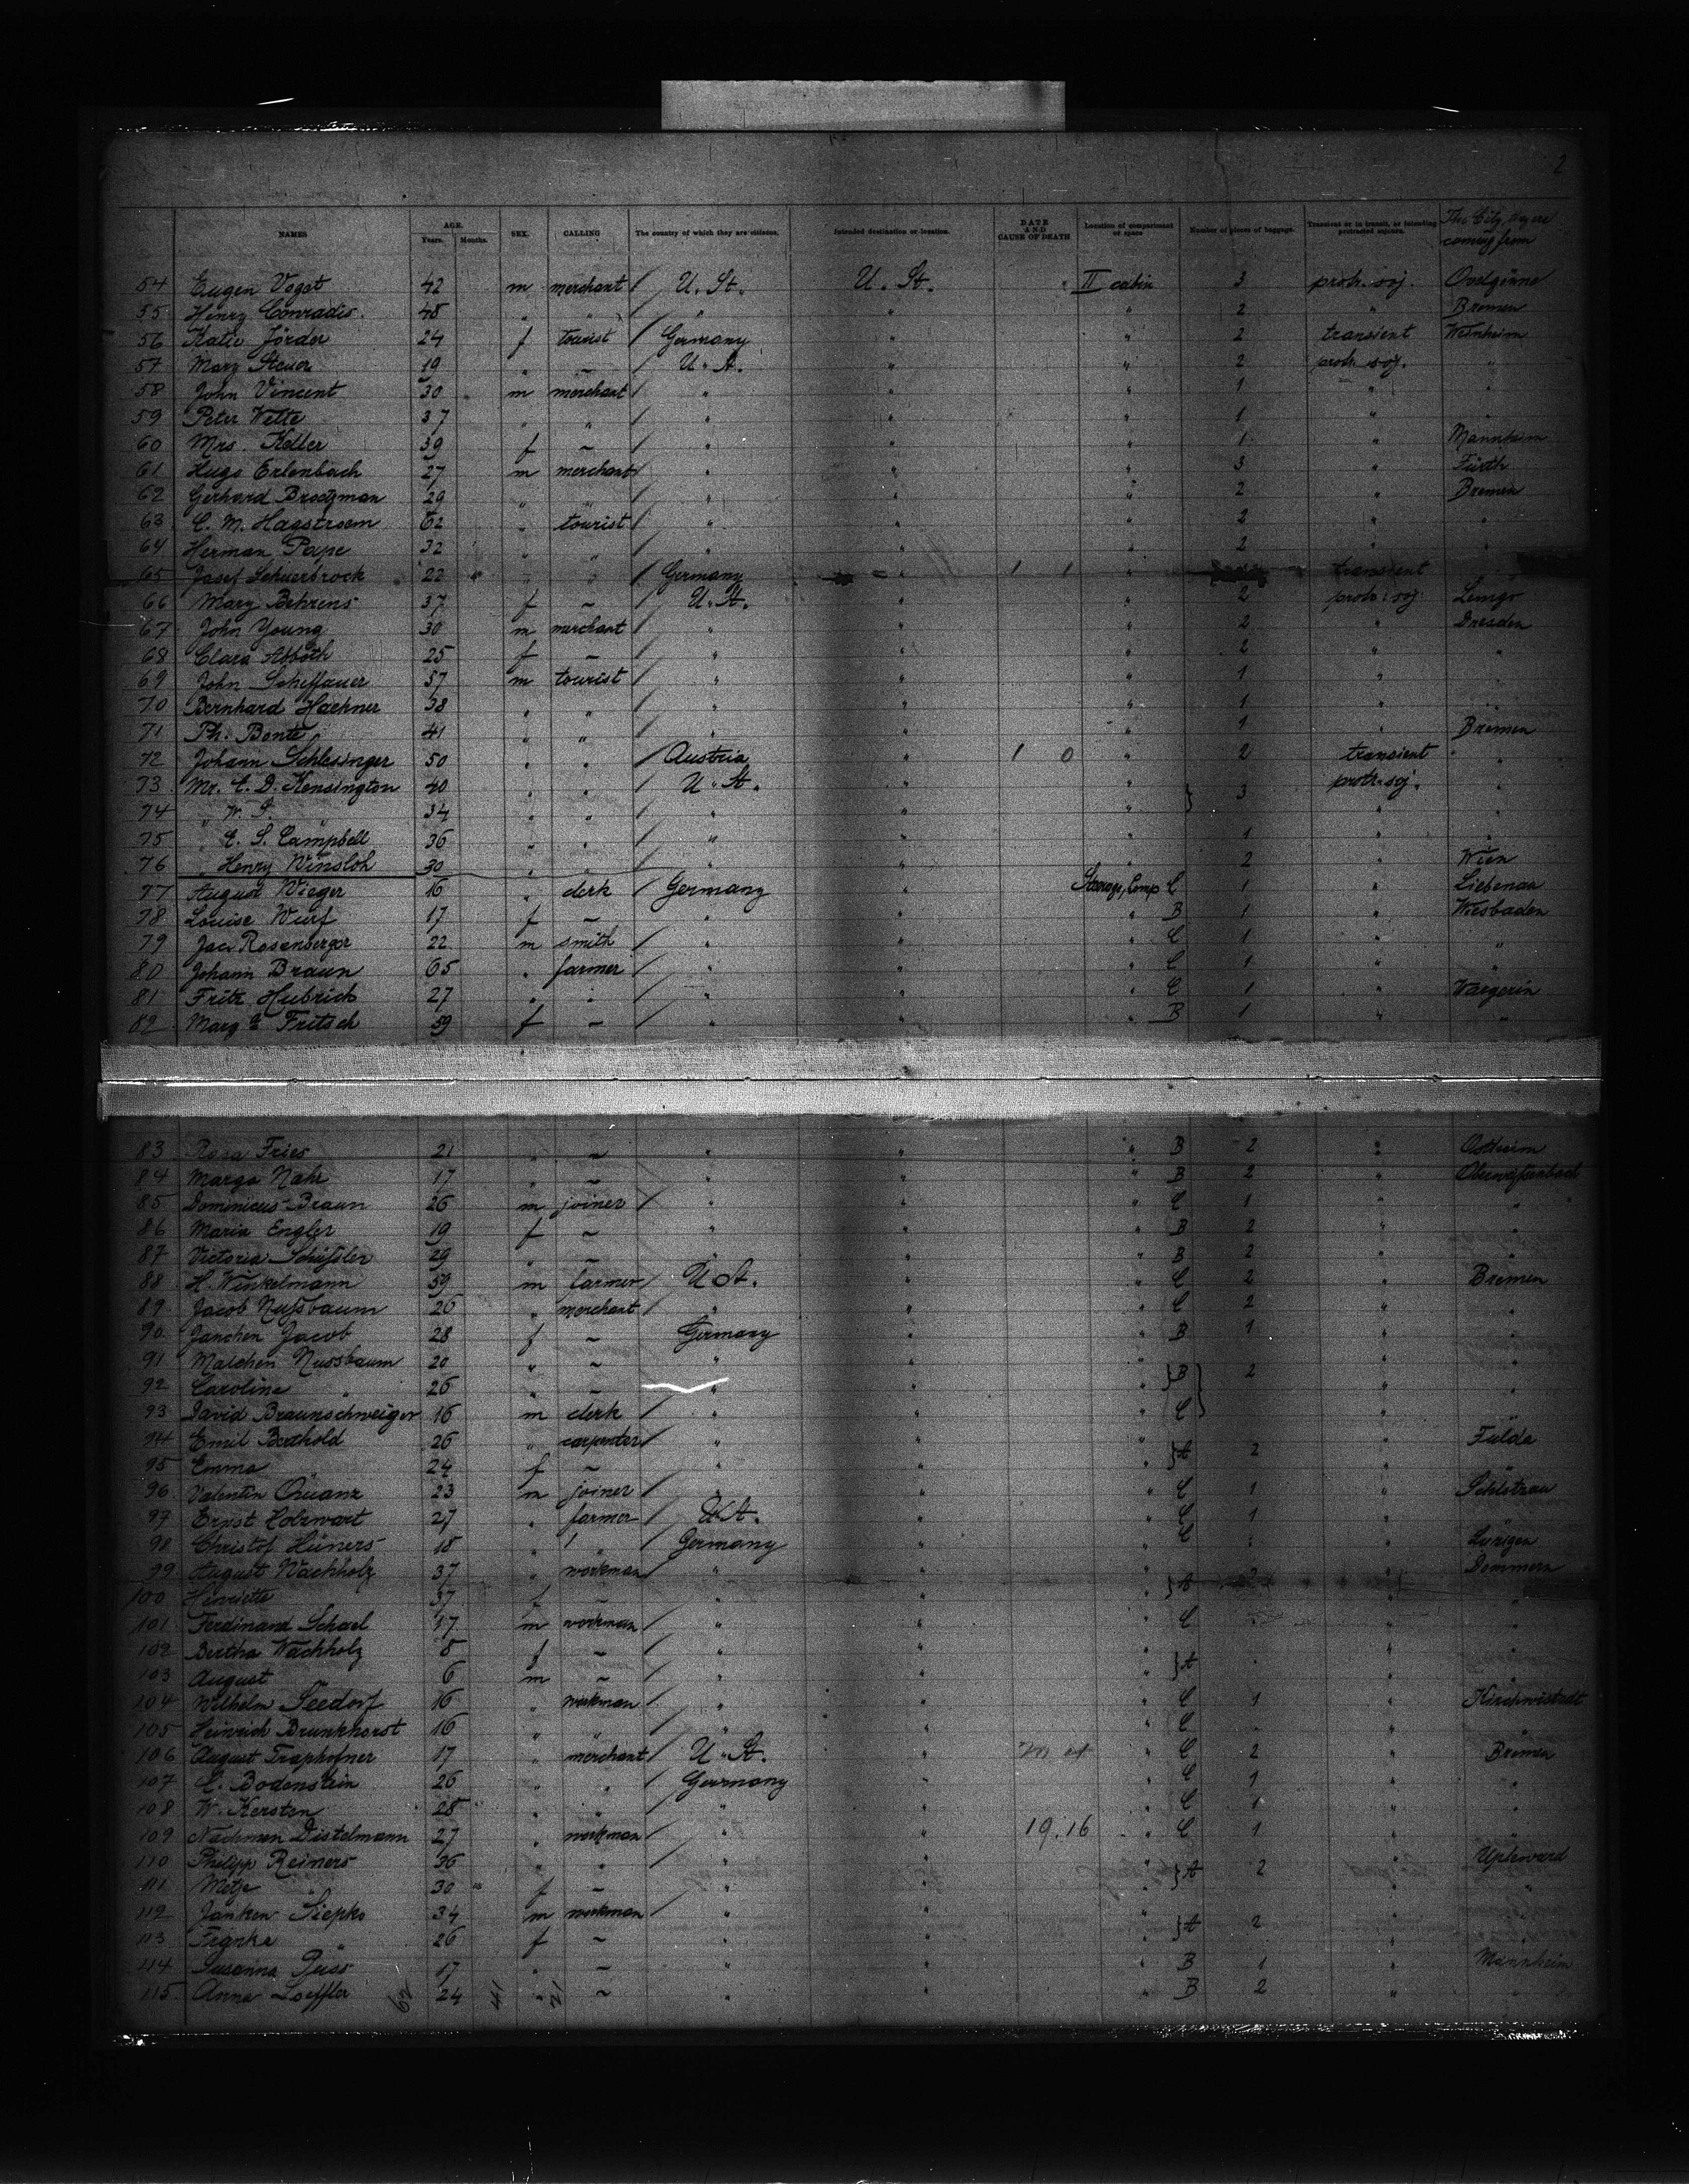 2
NAMES AGE. Years. Months. SEX. CALLING The country of which they are citizens. Intended destination or location. DATE AND CAUSE OF DEATH Location of compartment or space Number of pieces of baggage. Transient or in transit, or intending protracted sojourn. The City, they are coming from
54 Eugen Vogt 42 m merchant / U. St. U. St. II cabin 3 protr. soj. Ovelgönne
55 Henry Conradis. 48 " " / " " " 2 " Bremen
56 Katie Jörder 24 f tourist / Germany " " 2 transient Weinheim
57 Mary Steuer 19 " ~ / U. St. " " 2 protr. soj. "
58 John Vincent 30 m merchant / " " " 1 " "
59 Peter Wette 37 " " / " " " 1 " "
60 Mrs. Keller 39 f ~ / " " " 1 " Mannheim
61 Hugo Erlenbach 27 m merchant / " " " 3 " Fürth
62 Gerhard Broegman 29 " " / " " " 2 " Bremen
63 C. M. Hagstroem 62 " tourist / " " " 2 " "
64 Herman Pape 32 " " / " " " 2 " "
65 Josef Schuerbrock 22 " " / Germany " 1 1 " transient "
66 Mary Behrens 37 f ~ / U. St. " " 2 protr. soj. Lemgo
67 John Young 30 m merchant / " " " 2 " Dresden
68 Clara Abboth 25 f ~ / " " " 2 " "
69 John Scheffauer 57 m tourist / " " " 1 " "
70 Bernhard Haehner 38 " " / " " " 1 " "
71 Th. Bonte 41 " " / " " " 1 " Bremen
72 Johann Schlesinger 50 " " / Austria " 1 0 " 2 transient "
73 Mr. C. D. Kensington 40 " " / U. St. " " } 3 protr. soj. "
74 " W. S. " 34 " " / " " " " "
75 " C. S. Campbell 36 " " / " " " 1 " "
76 " Henry Winsloh 30 " " / " " " 2 " Wien
77 August Wieger 16 " clerk / Germany " Steerage, Comp C 1 " Liebenau
78 Louise Wurf 17 f ~ / " " " B 1 " Wiesbaden
79 Jac. Rosenberger 22 m smith / " " " C 1 " "
80 Johann Braun 65 " farmer / " " " C 1 " "
81 Fritz Hubrich 27 " " / " " " C 1 " Wargerin
82 Marg. E Fritsch 59 f ~ / " " " B 1 " "
83 Rosa Fries 21 " ~ " " " B 2 " Ostheim
84 Marga Nahr 17 " ~ " " " B 2 " Oberweissenbach
85 Dominicus Braun 26 m joiner / " " " C 1 " "
86 Maria Engler 19 f ~ " " " B 2 " "
87 Victoria Schüssler 29 " ~ " " " B 2 " "
88 H. Winkelmann 59 m farmer / U. St. " " C 2 " Bremen
89 Jacob Nussbaum 26 " merchant / " " " C 2 " "
90 Janchen Jacob 28 f ~ Germany " " B 1 " "
91 Malchen Nussbaum 20 " ~ " " " } B } 2 " "
92 Caroline " 26 " ~ " " " " "
93 David Braunschweiger 16 m clerk / " " " C " "
94 Emil Berthold 26 " carpenter / " " " } A 2 " Fulda
95 Emma " 24 f ~ " " " " "
96 Valentin Quanz 23 m joiner / " " " C 1 " Schlitzrau
97 Ernst Hobrwart 27 " farmer / U. St. " " C 1 " "
98 Christof Hüners 18 " " / Germany " " C " Lürigen
99 August Wachholz 37 " workman / " " " } A " Dommern
100 Henriette " 37 f ~ " " " " "
101 Ferdinand Schael 17 m workman / " " " C " "
102 Bertha Wachholz 8 f ~ / " " " } A " "
103 August " 6 m ~ / " " " " "
104 Wilhelm Seedorf 16 " workman / " " " C 1 " Kirchwistedt
105 Heinrich Brunkhorst 16 " " / " " " C " "
106 August Traphofner 17 " merchant / U. St. " " C 2 " Bremen
107 C. Bodenstein 26 " " / Germany " " C 1 " "
108 W. Kersten 28 " " / " " " C 1 " "
109 Nachmen Distelmann 27 " workman / " " 19.16 " C 1 " "
110 Philipp Reiners 36 " " / " " " } A 2 " Upleward
111 Metje " 30 f ~ " " " " "
112 Janken Siepko 34 m workman / " " " } A 2 " "
113 Frenke " 26 f ~ " " " " "
114 Susanna Reiss 17 " ~ " " " B 1 " Mannheim
115 Anna Loeffler 24 " ~ " " " B 2 " "
62 41 21